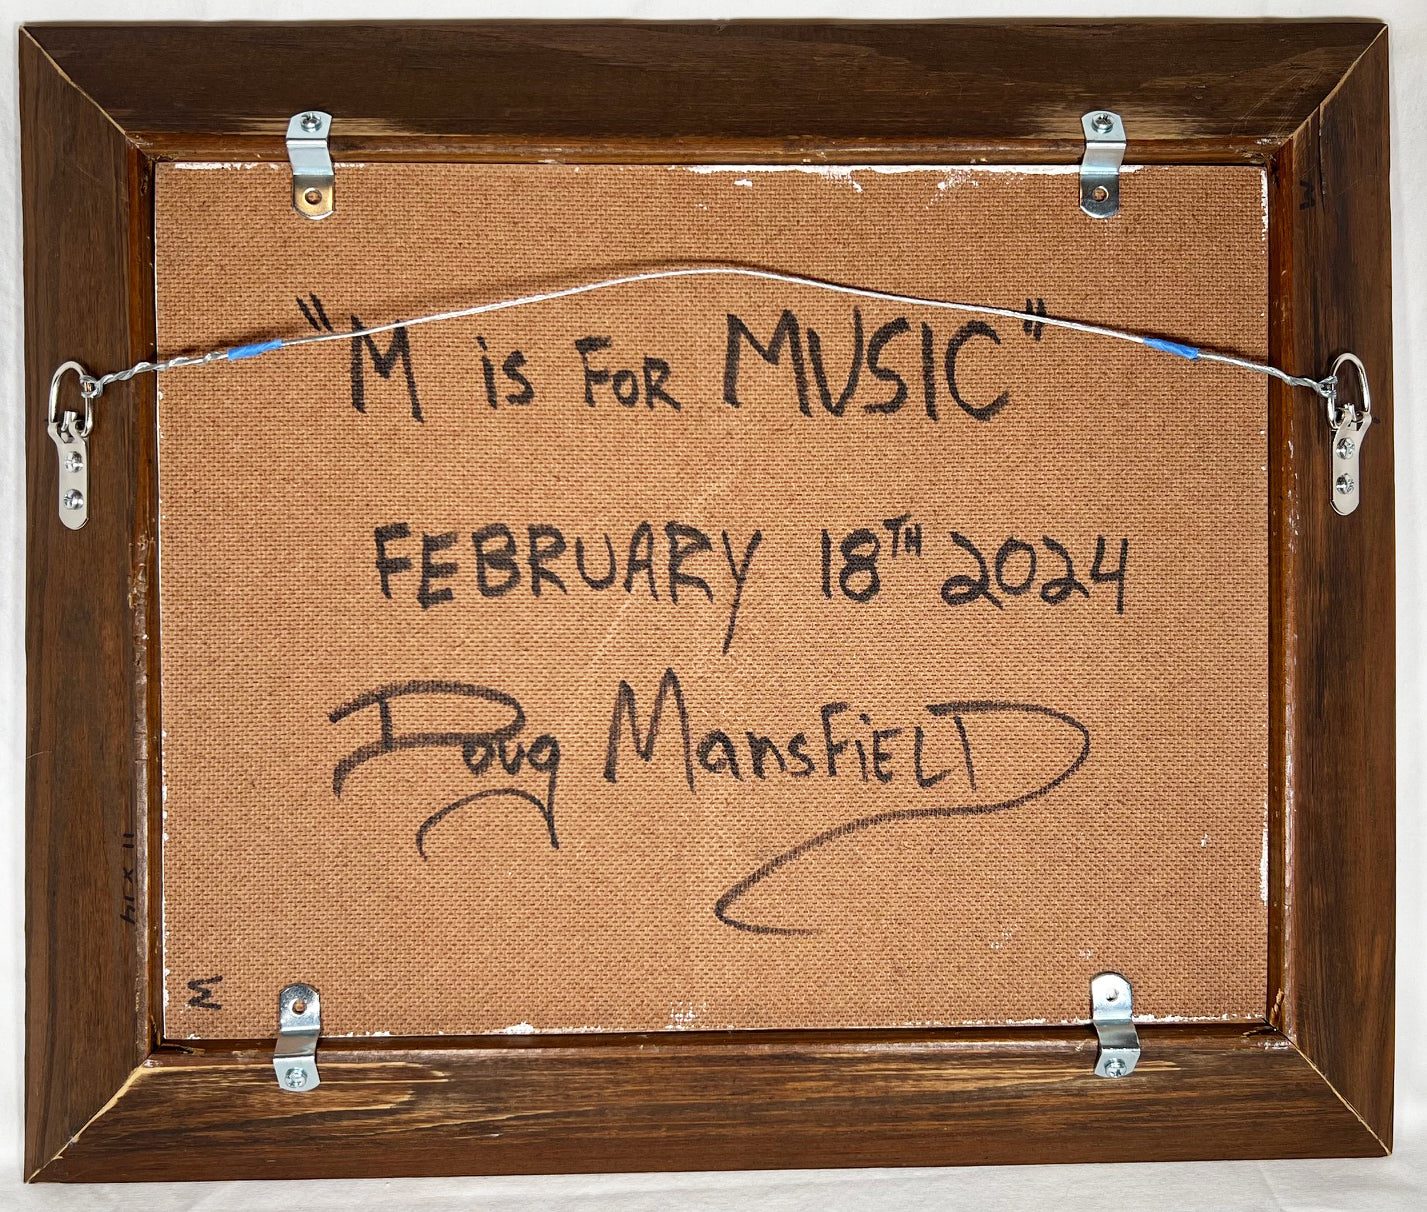 "M is FOR MUSIC"
FEBRUARY 18TH 2024
Doug MansFiELD
11 x 14
M
M